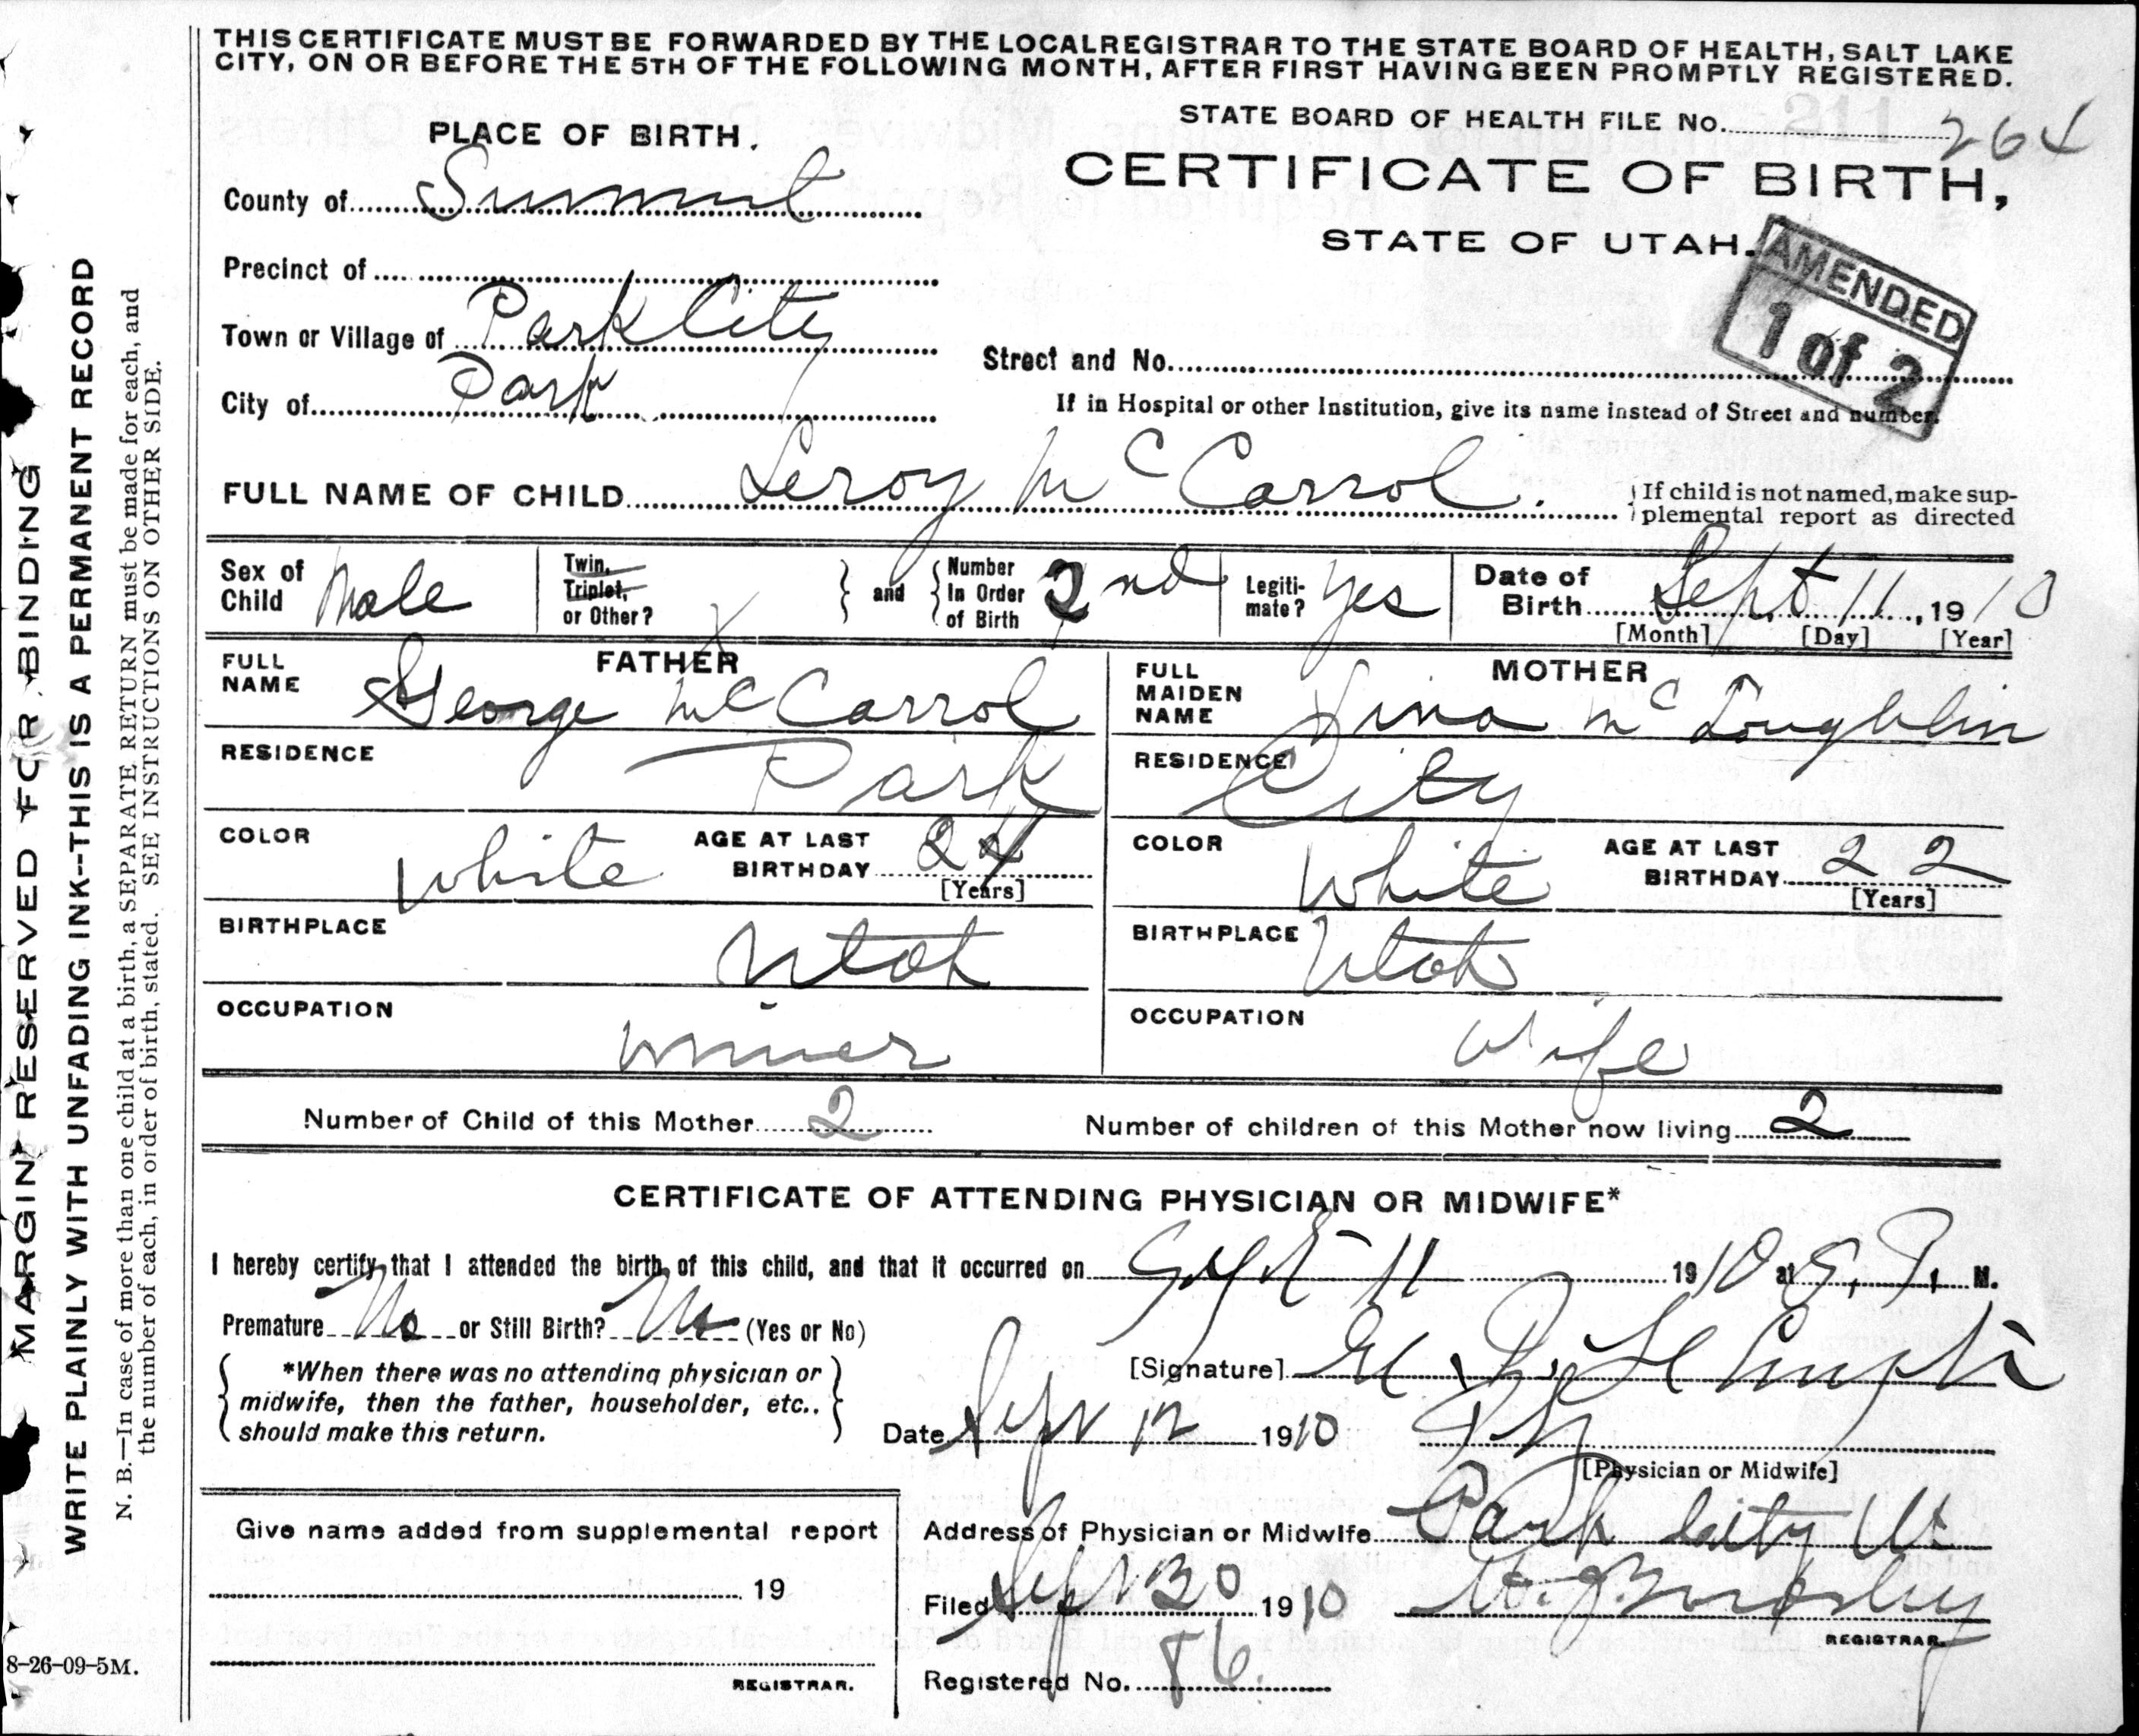 THIS CERTIFICATE MUST BE FORWARDED BY THE LOCAL REGISTRAR TO THE STATE BOARD OF HEALTH, SALT LAKE
CITY, ON OR BEFORE THE 5TH OF THE FOLLOWING MONTH, AFTER FIRST HAVING BEEN PROMPTLY REGISTERED.
STATE BOARD OF HEALTH FILE No. 264
PLACE OF BIRTH.
CERTIFICATE OF BIRTH,
STATE OF UTAH.
AMENDED
1 of 2
County of Summit
Precinct of
Town or Village of Park City
Street and No.
City of Park
If in Hospital or other Institution, give its name instead of Street and number.
FULL NAME OF CHILD Leroy McCarrol.
If child is not named, make sup-
plemental report as directed
Sex of
Child Male
Twin,
Triplet,
or Other?
and
Number
In Order
of Birth 2nd
Legiti-
mate? Yes
Date of
Birth Sept 11, 1910
[Month] [Day] [Year]
FATHER
FULL
NAME George McCarrol
MOTHER
FULL
MAIDEN
NAME Lina McLoughlin
RESIDENCE Park
RESIDENCE City
COLOR White
AGE AT LAST
BIRTHDAY 24
[Years]
COLOR White
AGE AT LAST
BIRTHDAY 22
[Years]
BIRTHPLACE Utah
BIRTHPLACE Utah
OCCUPATION Miner
OCCUPATION Wife
Number of Child of this Mother 2
Number of children of this Mother now living 2
CERTIFICATE OF ATTENDING PHYSICIAN OR MIDWIFE*
I hereby certify that I attended the birth of this child, and that it occurred on Sept 11 1910 at P. M.
Premature No or Still Birth? No (Yes or No)
*When there was no attending physician or
midwife, then the father, householder, etc..
should make this return.
[Signature]
Date Sept 12 1910
[Physician or Midwife]
Give name added from supplemental report
19
REGISTRAR.
Address of Physician or Midwife Park City Ut
Filed Sept 30 1910
REGISTRAR.
Registered No. 86.
MARGIN RESERVED FOR BINDING
WRITE PLAINLY WITH UNFADING INK--THIS IS A PERMANENT RECORD
N. B.—In case of more than one child at a birth, a SEPARATE RETURN must be made for each, and
the number of each, in order of birth, stated. SEE INSTRUCTIONS ON OTHER SIDE.
8-26-09-5M.